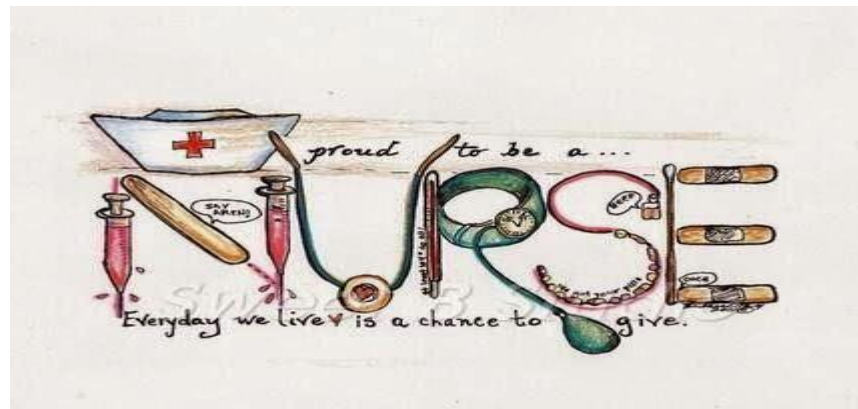 proud to be a...
NURSE
SAY AHHH!
BEEP
OUCH
Everyday we live is a chance to give.